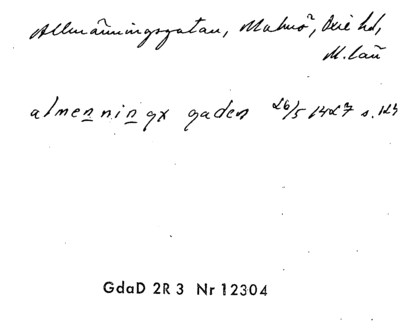 Allmänningsgatan, Malmö, Oxie hd,
M. län
almenningx gaden 26/5 1427 s. 124
GdaD 2R 3 Nr 12304